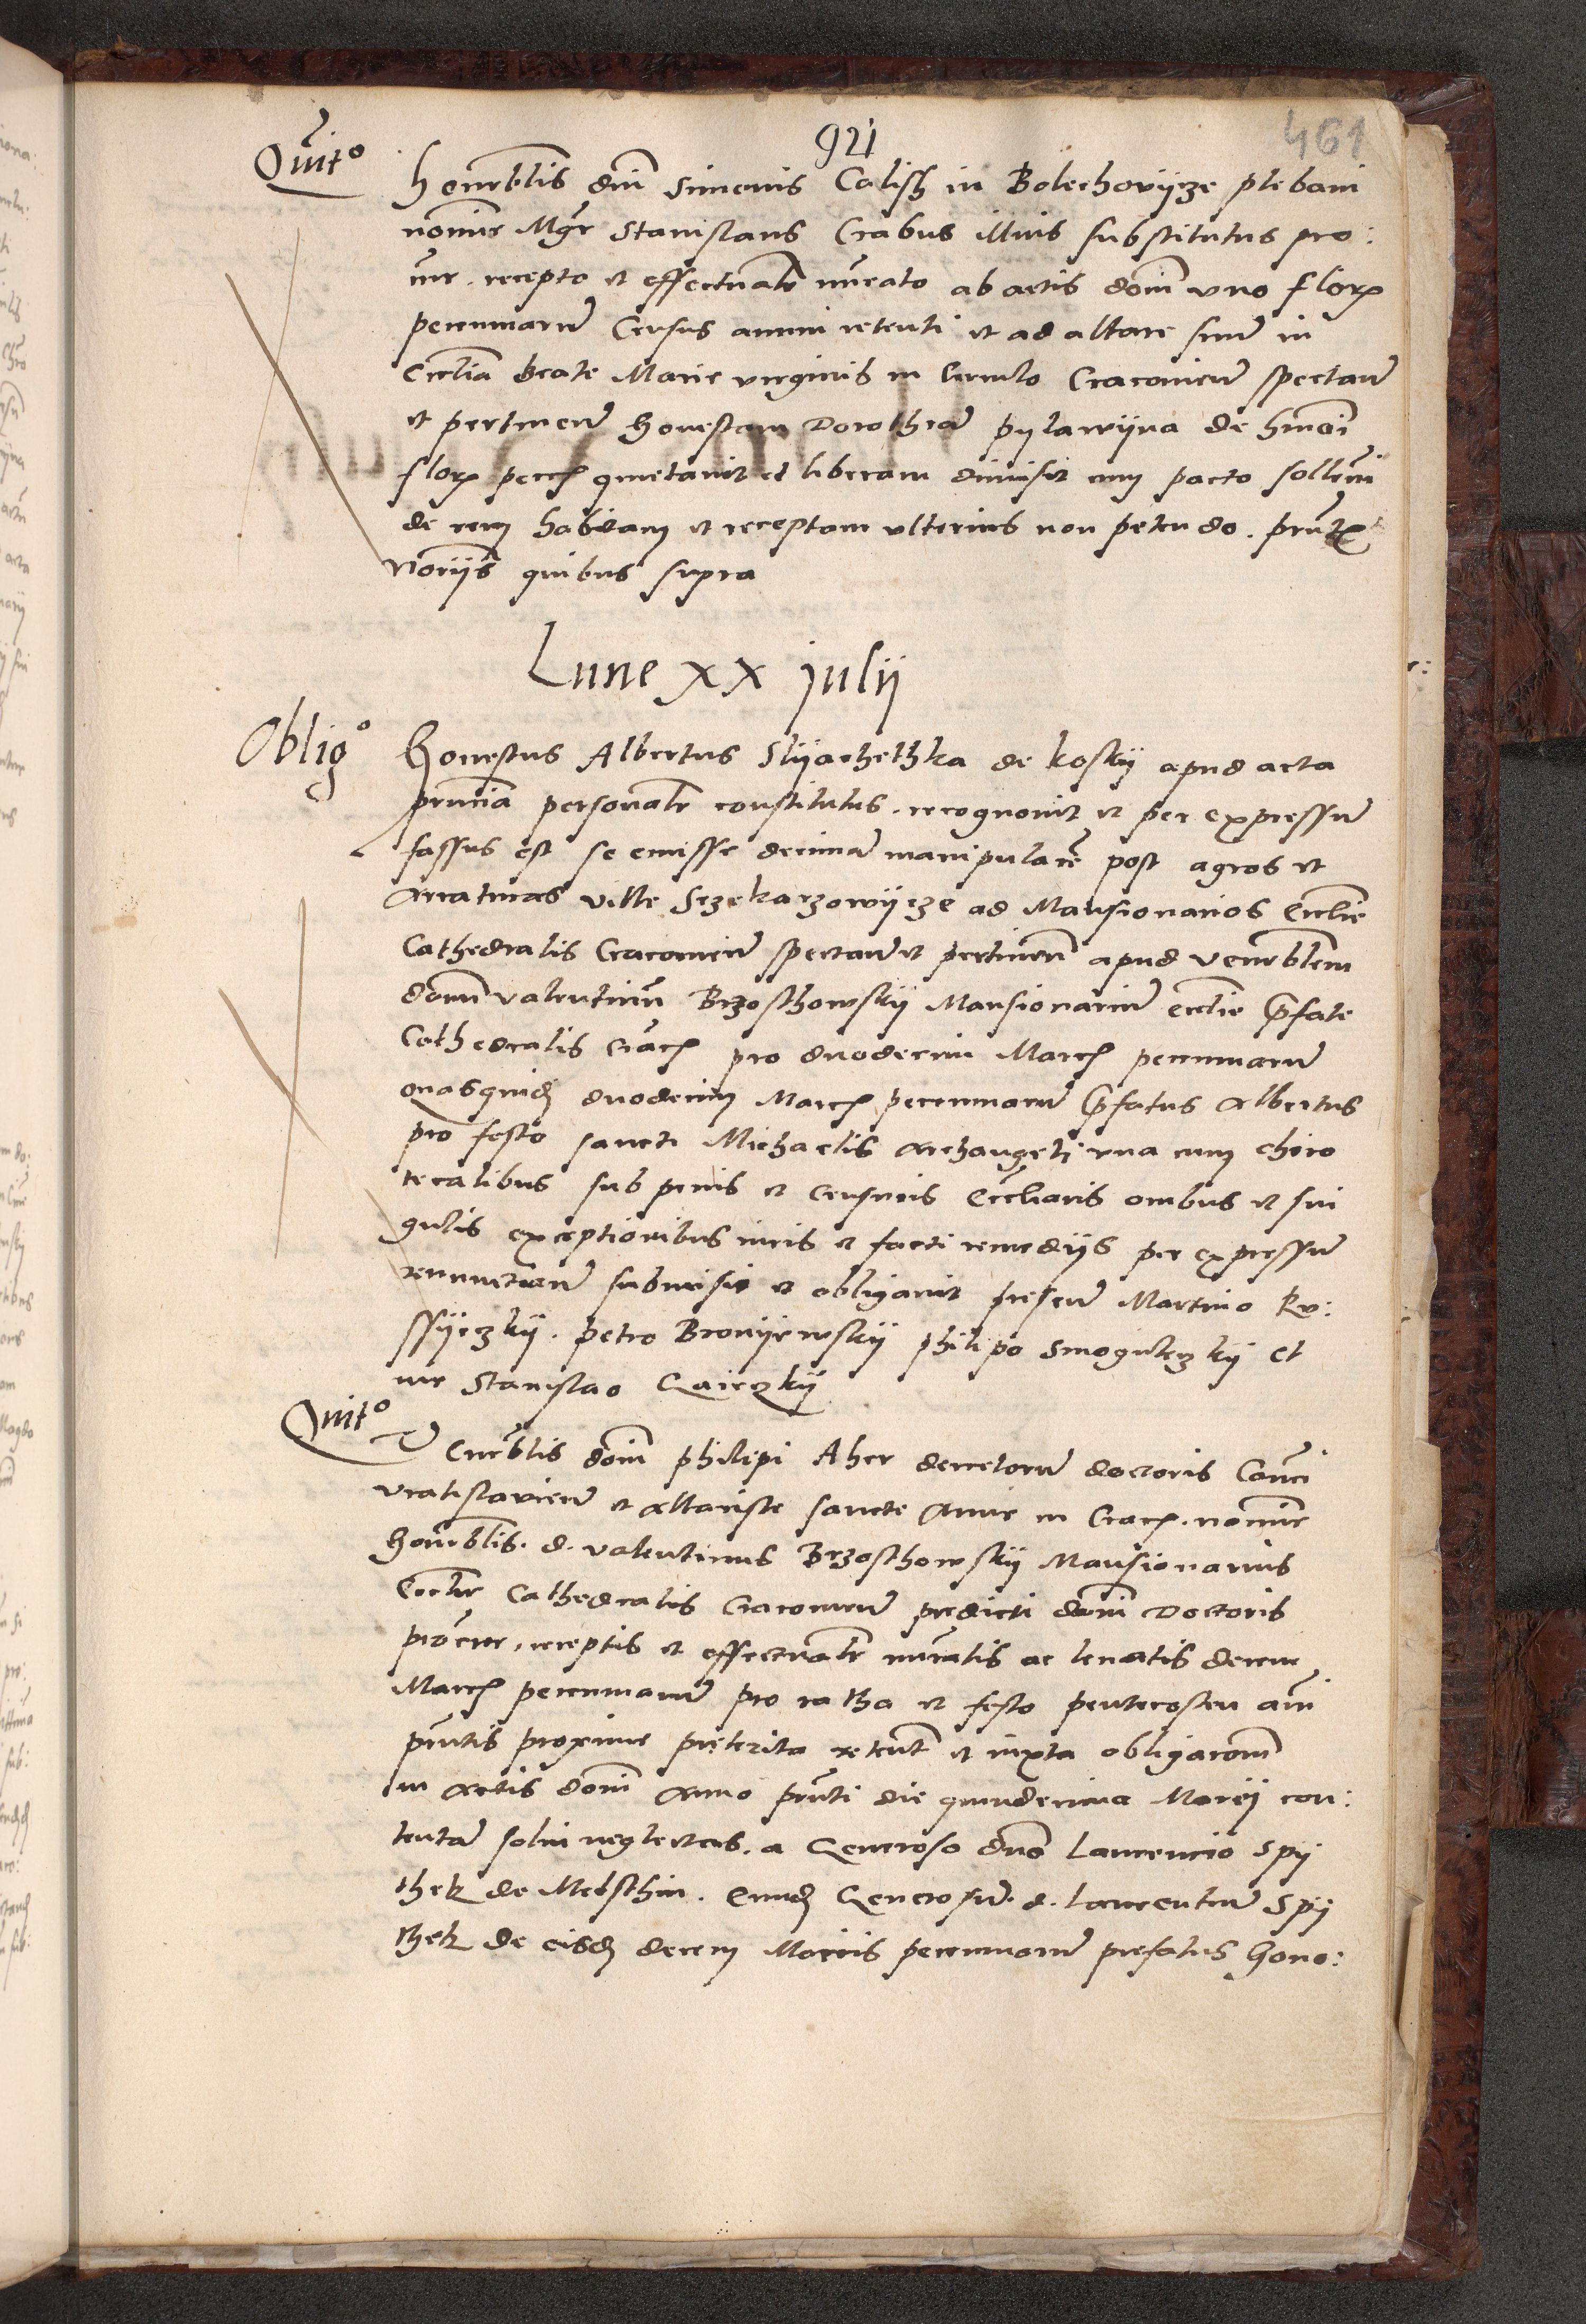 921
461
Quito
honrblis dni Simonis Calissz in Bolechovijcze plebani
nomine Mgr Stanislaus Crabus illius substitutus pro:
nir. recepto et effectualr nuerato ab actis domi vno florx
pecuniaru Census annui retenti et ad altare suu in
Ecclia Beate Marie virginis in Circulo Cracovien spectan
et pertinen honestam Dorothea pylawijna de hmoi
florx pecc quietavit et liberam dimisit cum pacto sollemni
de rem habitam et receptam vlterius non petendo. prntx
noriis quibus supra
Lune xx julij
Oblig
Honestus Albertus Slijachethka de koskij apud acta
prncia personalr constitutus. recognovit et per expressu
fassus est se emisse decima manipulare post agros et
Araturas ville Sczekarzowijcze ad Mansionarios Ecclie
Cathedralis Cracovien spectan et pertinen apud venerblem
domi valentinu Brzosthowskij Mansionariu ecclie pfate
Cathedralis Crac pro duodecim Marc pecuniaru
quasquid duodecim Marc pecuniaru pfatus Albertus
pro festo sancti Michaelis Archangeli vna cum chiro
tecalibus sub penis et censuris Eccliaris omibus et sin
gulis exceptionibus iuris et facti remedijs per expressu
renunctian submisit et obligavit presen Martino Ru:
ssijeczkij. petro Bronijewskij philipo Smoguleczkij et
me Stanislao Gajeczkij
Quito
Venerblis domi philipi Aher decretoru doctoris Canci
vratislavien et altariste sancte Anne in Crac. nomine
honrblis. d. valentinus Brzosthowskij Mansionarius
Ecclie Cathedralis Cracovien predicti domi Doctoris
procror. receptis et effectualr nueratis ac levatis decem
Marc pecuniaru pro ratha et festo pentecosten ani
prntis proxime preterita retent et iuxta obligacom
in Actis domi Anno prnti die quindecima Marcij con:
tenta solui neglectas. a Generoso dno Laurencio Spij
thek de Melsthin. Eund Generosu. d. laurentiu Spij
thek de eisd decem Marcis pecuniaru prefatus hono: